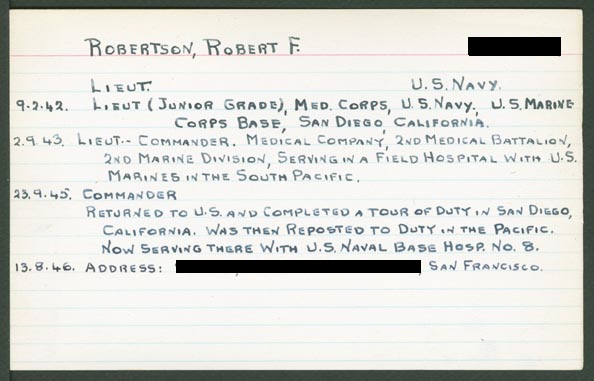 ROBERTSON, ROBERT F.
LIEUT. U.S. NAVY.
9.2.42. LIEUT (JUNIOR GRADE), MED. CORPS, U.S. NAVY, U.S. MARINE
CORPS BASE, SAN DIEGO, CALIFORNIA.
2.9.43. LIEUT.- COMMANDER. MEDICAL COMPANY, 2ND MEDICAL BATTALION,
2ND MARINE DIVISION, SERVING IN A FIELD HOSPITAL WITH U.S.
MARINES IN THE SOUTH PACIFIC.
23.9.45. COMMANDER
RETURNED TO U.S. AND COMPLETED A TOUR OF DUTY IN SAN DIEGO,
CALIFORNIA. WAS THEN REPOSTED TO DUTY IN THE PACIFIC.
NOW SERVING THERE WITH U.S. NAVAL BASE HOSP. NO. 8.
13.8.46. ADDRESS: SAN FRANCISCO.